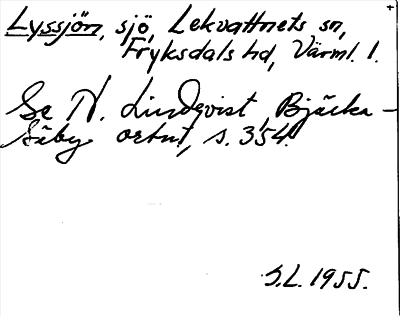 Lyssjön, sjö, Lekvattnets sn,
Fryksdals hd, Värml. l.
Se N. Lindqvist, Bjärka-
Säby ortn., s. 354.
S.L. 1955.